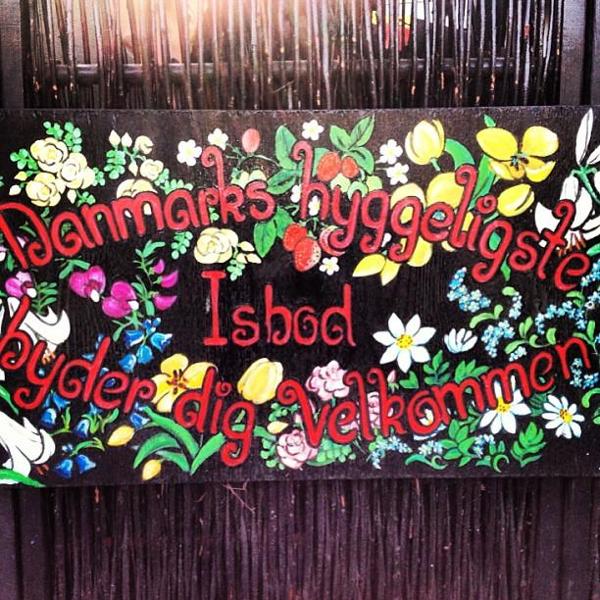 Danmarks hyggeligste
Isbod
byder dig Velkommen